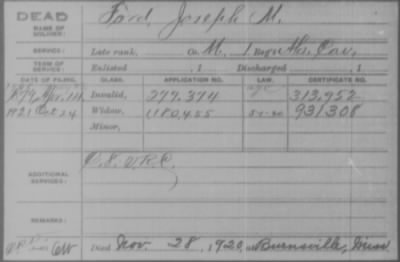 DEAD Ford, Joseph M.
NAME OF SOLDIER:
SERVICE: Late rank, Co. M, 1 Reg't Miss. Cav.
TERM OF SERVICE: Enlisted , 1 Discharged , 1
DATE OF FILING. CLASS. APPLICATION NO. LAW. CERTIFICATE NO.
1879, Apr. 14 Invalid, 277.374 313.952
1921 Oct 24 Widow, 1180.455 931308
Minor,
ADDITIONAL SERVICES:
REMARKS:
Died Nov. 28, 1920, at Burnsville, Miss